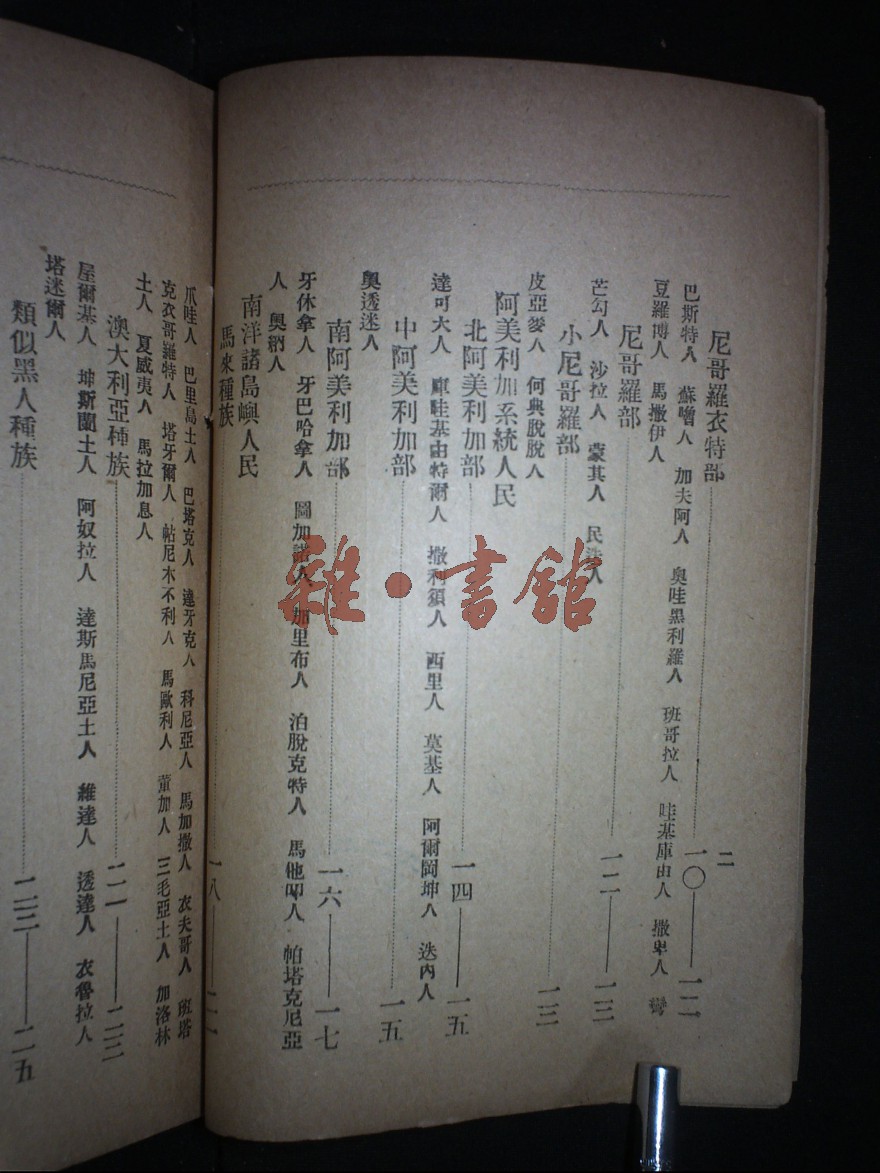 二
尼哥羅衣特部 一〇——一二
巴斯特人 蘇嚕人 加夫阿人 奧哇黑利羅人 班哥拉人 哇基庫由人 撒卑人 彎
豆羅博人 馬撒伊人
尼哥羅部 一二——一三
芒勾人 沙拉人 蒙其人 民 人
小尼哥羅部 一三
皮亞麥人 何與脫脫人
阿美利加系統人民
北阿美利加部 一四——一五
達可大人 庫哇基由特爾人 撒利須人 西里人 莫基人 阿爾岡坤人 迭內人
中阿美利加部 一五
奧透迷人
南阿美利加部 一六——一七
牙休拿人 牙巴哈拿人 圖加諾人 加里布人 泊脫克特人 馬他叩人 帕塔克尼亞
人 奧納人
南洋諸島嶼人民
馬來種族 一八——二一
爪哇人 巴里島土人 巴塔克人 達牙克人 科尼亞人 馬加撒人 衣夫哥人 班塔
克衣哥羅特人 塔牙爾人 帖尼木不利人 馬歐利人 董加人 三毛亞土人 加洛林
土人 夏威夷人 馬拉加息人
澳大利亞種族 二一——二三
屋爾基人 坤斯蘭土人 阿奴拉人 達斯馬尼亞土人 維達人 透達人 衣魯拉人
塔迷爾人
類似黑人種族 二三——二五
雜·書館